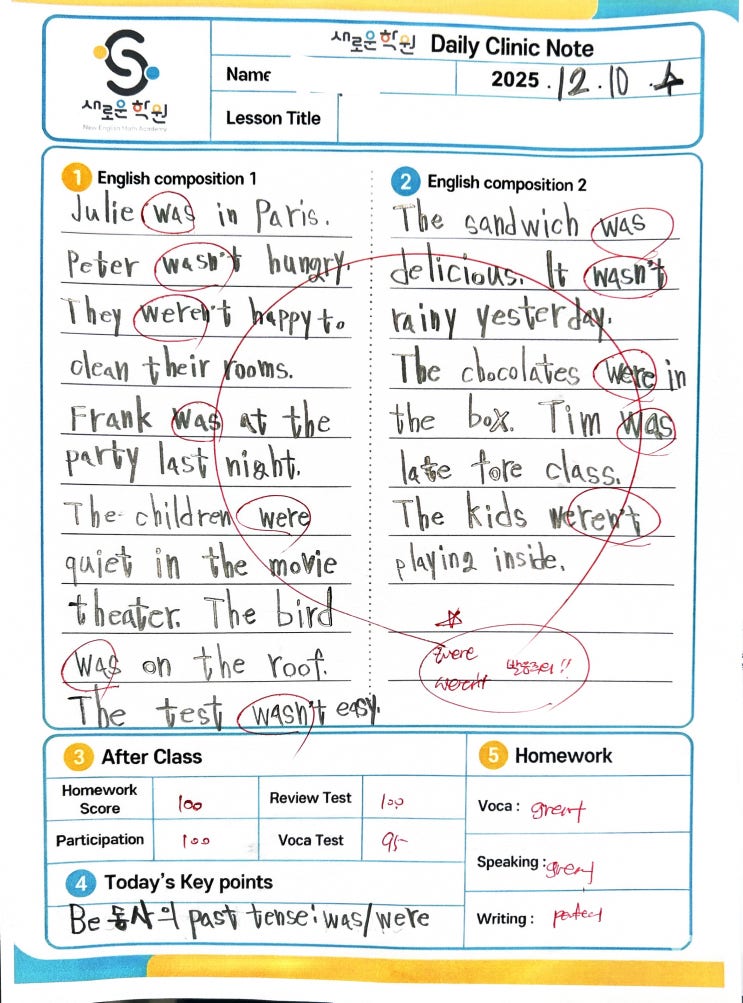 새로운학원
New English Math Academy
새로운학원 Daily Clinic Note
Name
2025.12.10.수
Lesson Title
1 English composition 1
Julie was in Paris.
Peter wasn't hungry.
They weren't happy to
clean their rooms.
Frank was at the
party last night.
The children were
quiet in the movie
theater. The bird
was on the roof.
The test wasn't easy.
2 English composition 2
The sandwich was
delicious. It wasn't
rainy yesterday.
The chocolates were in
the box. Tim was
late fore class.
The kids weren't
playing inside.
were
weren't
3 After Class
Homework Score 100
Review Test 100
Participation 100
Voca Test 95
4 Today's Key points
Be 동사의 past tense: was/were
5 Homework
Voca : great
Speaking : great
Writing : perfect